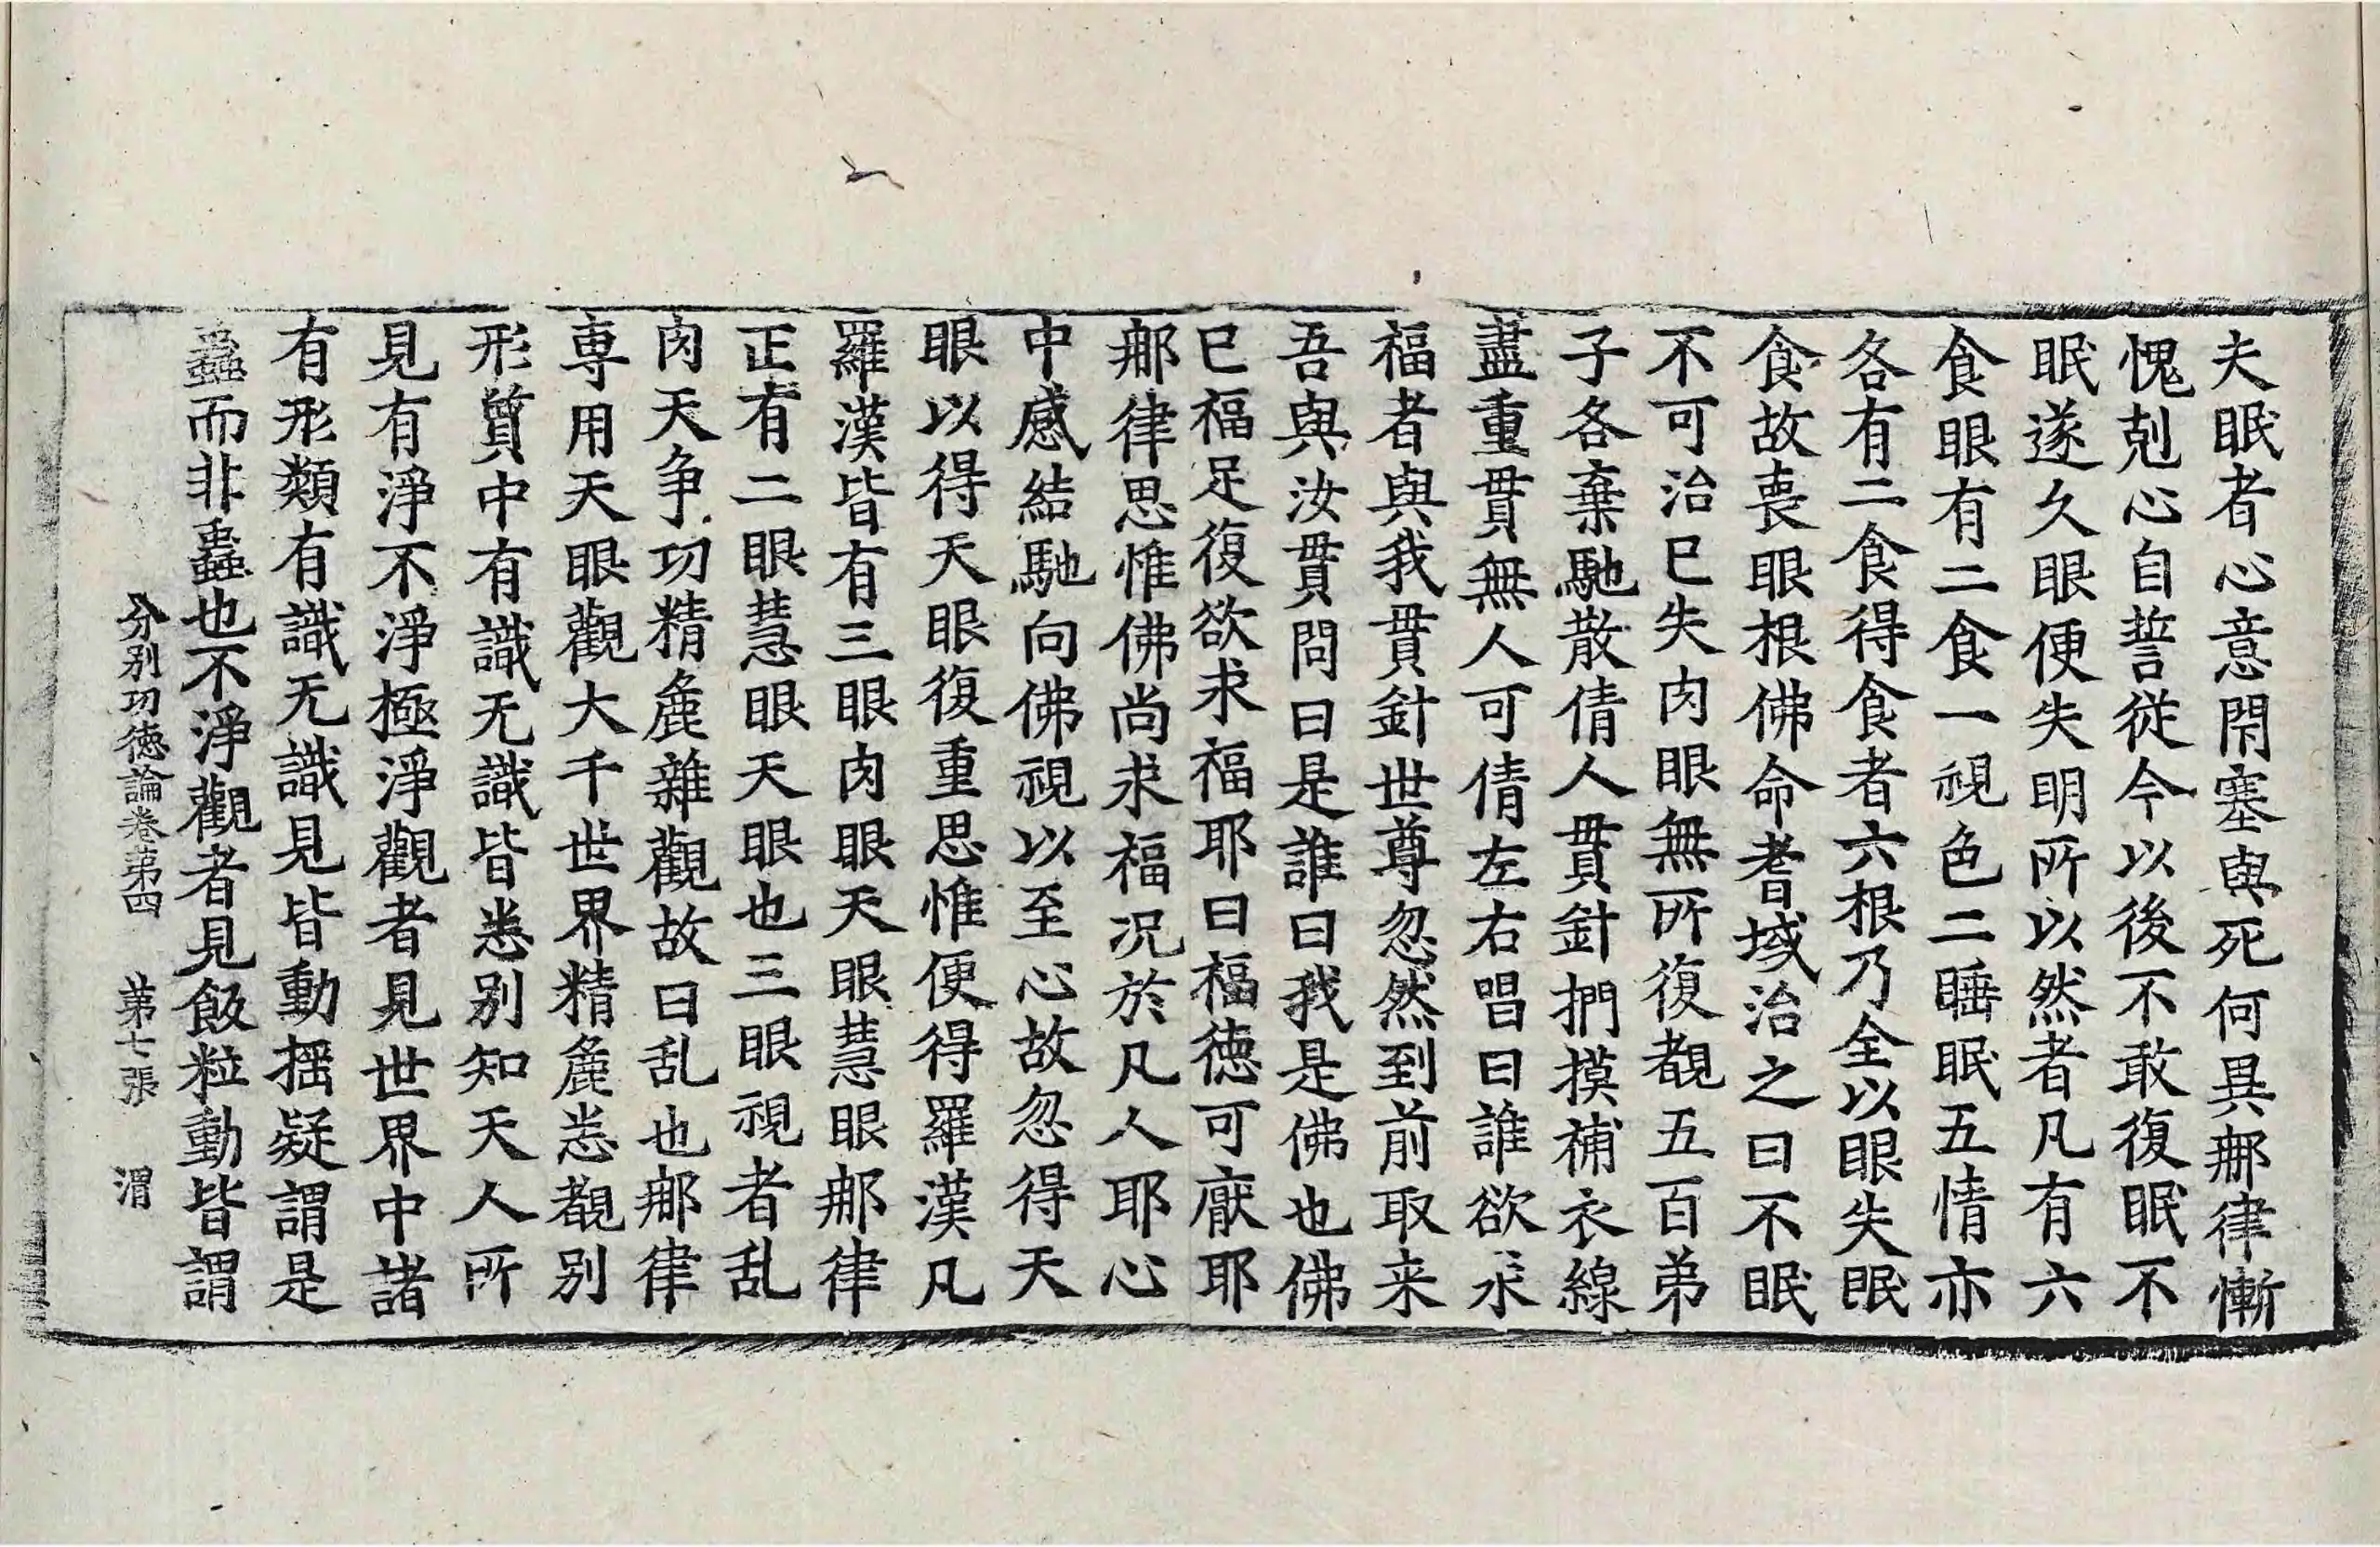 夫眠者心意閇塞與死何異㖠律慚
愧剋心自誓從今以後不敢復眠不
眠遂久眼便失明所以然者凡有六
食眼有二食一視色二睡眠五情亦
各有二食得食者六根乃全以眼失眠
食故喪眼根佛命耆域治之曰不眠
不可治已失肉眼無所復覩五百弟
子各棄馳散倩人貫針捫摸補衣線
盡重貫無人可倩左右唱曰誰欲求
福者與我貫針世尊忽然到前取来
吾與汝貫問曰是誰曰我是佛也佛
已福足復欲求福耶曰福德可猒耶
㖠律思惟佛尚求福况於凡人耶心
中感結馳向佛視以至心故忽得天
眼以得天眼復重思惟便得羅漢凡
羅漢皆有三眼肉眼天眼慧眼㖠律
正有二眼慧眼天眼也三眼視者乱
肉天争功精麁雜觀故曰乱也㖠律
専用天眼觀大千世界精麁悉覩别
形質中有識无識皆悉别知天人所
見有淨不淨極淨觀者見世界中諸
有形類有識无識見皆動揺疑謂是
蟲而非蟲也不淨觀者見飯粒動皆謂
分别功徳論卷第四　第七張　渭